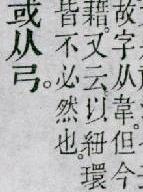 故字从韋。但今
藉。又云、以紐環
皆不必然也。
或从弓。